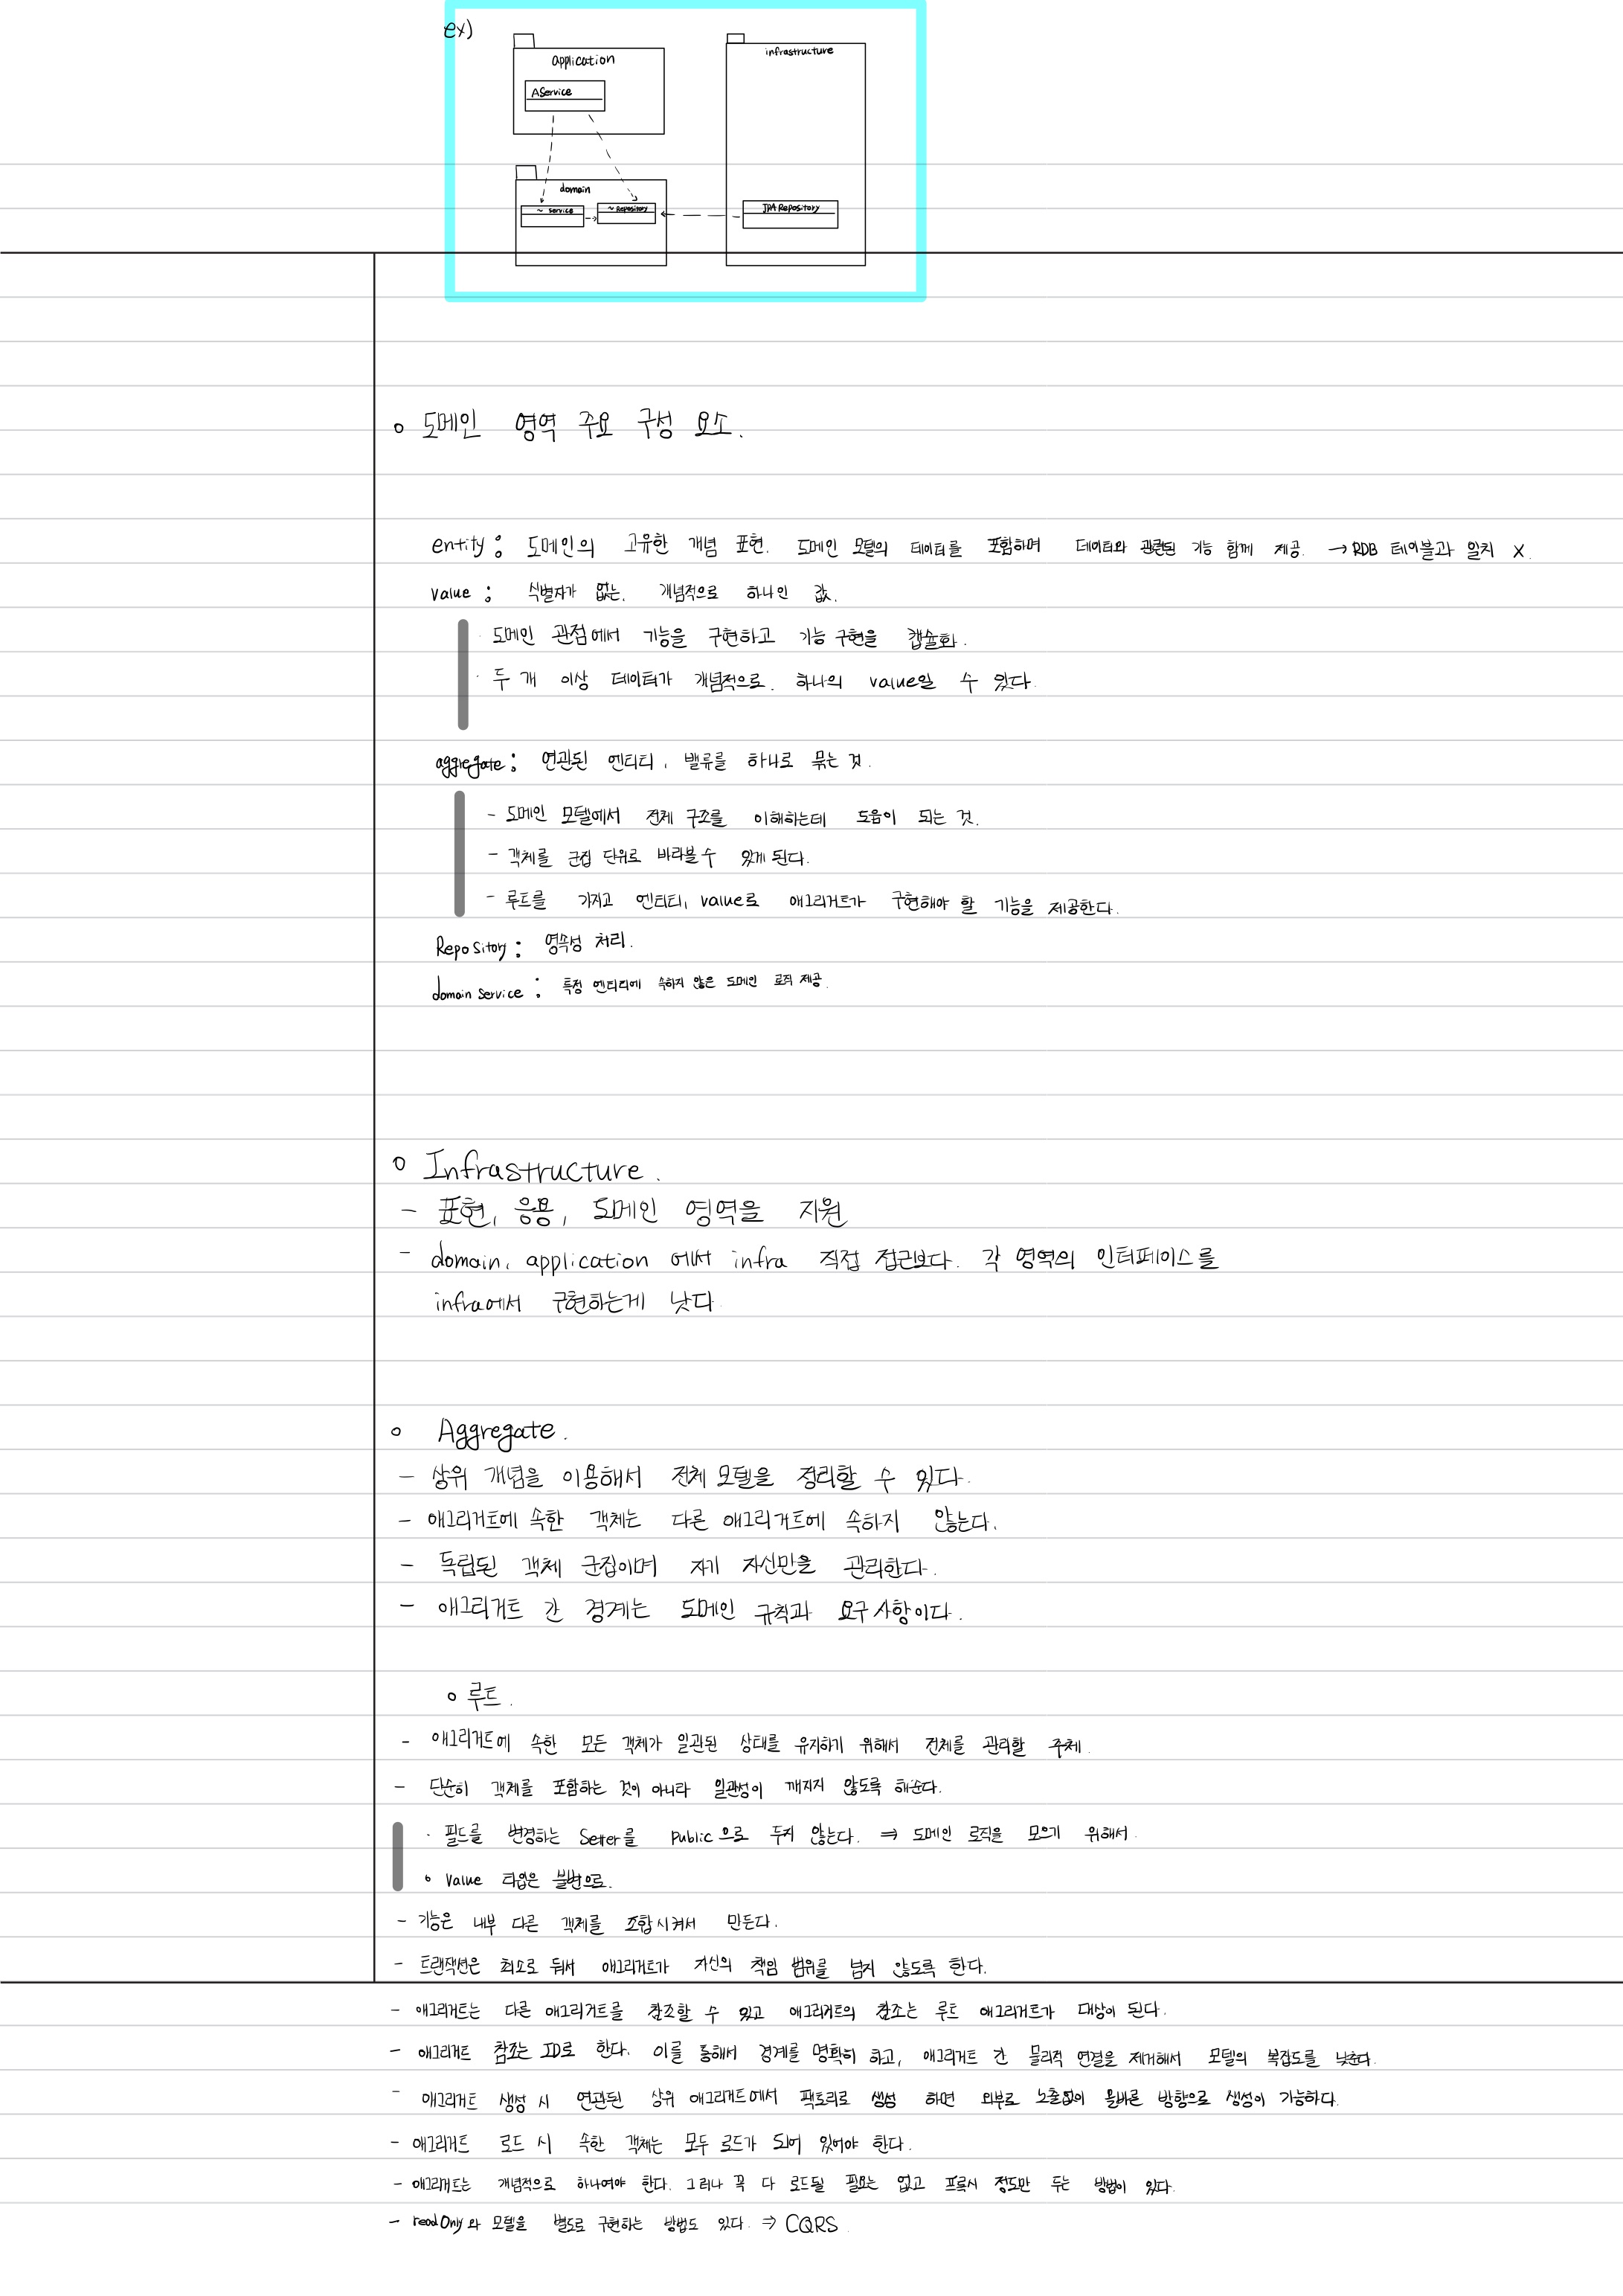 ex)
application
AService
infrastructure
domain
~ service
~ Repository
JPA Repository
o 도메인 영역 주요 구성 요소.
entity : 도메인의 고유한 개념 표현. 도메인 모델의 데이터를 포함하며 데이터와 관련된 기능 함께 제공. → RDB 테이블과 일치 X.
value : 식별자가 없는. 개념적으로 하나인 값.
· 도메인 관점에서 기능을 구현하고 기능 구현을 캡슐화.
· 두 개 이상 데이터가 개념적으로. 하나의 value일 수 있다.
aggregate : 연관된 엔티티, 밸류를 하나로 묶는 것.
- 도메인 모델에서 전체 구조를 이해하는데 도움이 되는 것.
- 객체를 군집 단위로 바라볼 수 있게 된다.
- 루트를 가지고 엔티티, value로 애그리거트가 구현해야 할 기능을 제공한다.
Repository : 영속성 처리.
domain service : 특정 엔티티에 속하지 않은 도메인 로직 제공.
o Infrastructure.
- 표현, 응용, 도메인 영역을 지원
- domain, application 에서 infra 직접 접근보다. 각 영역의 인터페이스를
infra에서 구현하는게 낫다.
o Aggregate.
- 상위 개념을 이용해서 전체 모델을 정리할 수 있다.
- 애그리거트에 속한 객체는 다른 애그리거트에 속하지 않는다.
- 독립된 객체 군집이며 자기 자신만을 관리한다.
- 애그리거트 간 경계는 도메인 규칙과 요구사항이다.
o 루트.
- 애그리거트에 속한 모든 객체가 일관된 상태를 유지하기 위해서 전체를 관리할 주체.
- 단순히 객체를 포함하는 것이 아니라 일관성이 깨지지 않도록 해준다.
· 필드를 변경하는 Setter를 public으로 두지 않는다. ⇒ 도메인 로직을 모으기 위해서.
o Value 타입은 불변으로.
- 기능은 내부 다른 객체를 포함시켜서 만든다.
- 트랜잭션은 최소로 둬서 애그리거트가 자신의 책임 범위를 넘지 않도록 한다.
- 애그리거트는 다른 애그리거트를 참조할 수 있고 애그리거트의 참조는 루트 애그리거트가 대상이 된다.
- 애그리거트 참조는 ID로 한다. 이를 통해서 경계를 명확히 하고, 애그리거트 간 물리적 연결을 제거해서 모델의 복잡도를 낮춘다.
- 애그리거트 생성 시 연관된 상위 애그리거트에서 팩토리로 생성 하면 외부로 노출없이 올바른 방향으로 생성이 가능하다.
- 애그리거트 로드 시 속한 객체는 모두 로드가 되어 있어야 한다.
- 애그리거트는 개념적으로 하나여야 한다. 그러나 꼭 다 로드될 필요는 없고 프록시 정도만 두는 방법이 있다.
- readOnly와 모델을 별도로 구현하는 방법도 있다. ⇒ CQRS.